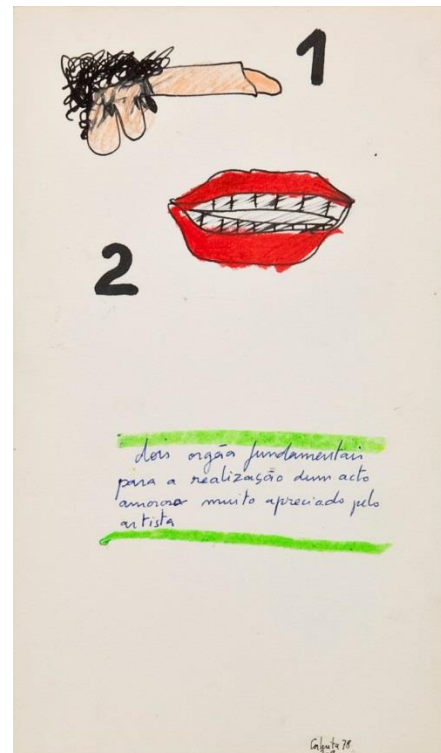 1
2
dois orgão fundamentais
para a realização dum acto
amoroso muito apreciado pelo
artista
78